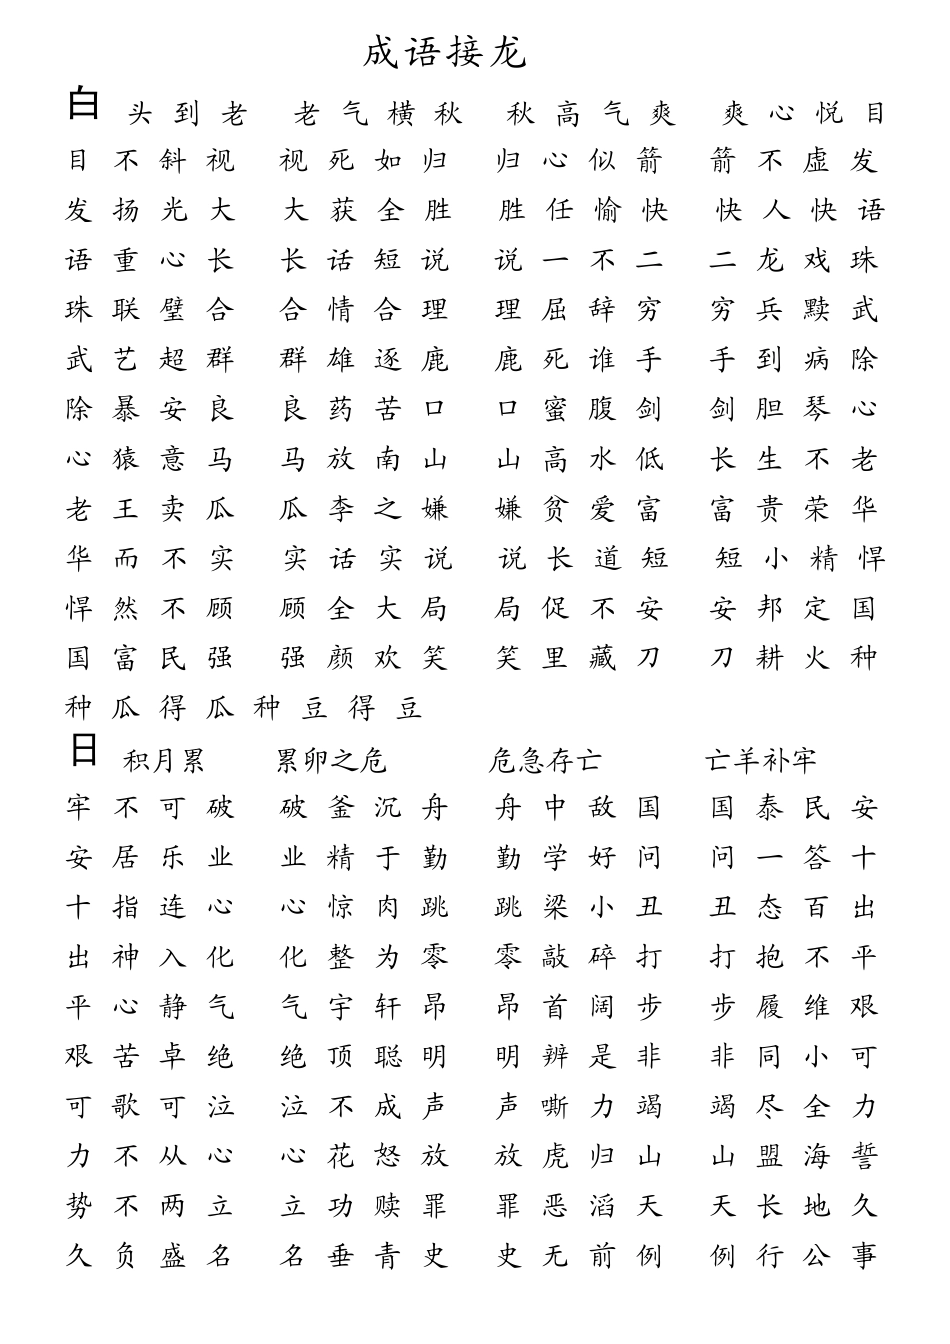 成语接龙
白 头到老 老气横秋 秋高气爽 爽心悦目
目不斜视 视死如归 归心似箭 箭不虚发
发扬光大 大获全胜 胜任愉快 快人快语
语重心长 长话短说 说一不二 二龙戏珠
珠联璧合 合情合理 理屈辞穷 穷兵黩武
武艺超群 群雄逐鹿 鹿死谁手 手到病除
除暴安良 良药苦口 口蜜腹剑 剑胆琴心
心猿意马 马放南山 山高水低 长生不老
老王卖瓜 瓜李之嫌 嫌贫爱富 富贵荣华
华而不实 实话实说 说长道短 短小精悍
悍然不顾 顾全大局 局促不安 安邦定国
国富民强 强颜欢笑 笑里藏刀 刀耕火种
种瓜得瓜种豆得豆
日 积月累 累卵之危 危急存亡 亡羊补牢
牢不可破 破釜沉舟 舟中敌国 国泰民安
安居乐业 业精于勤 勤学好问 问一答十
十指连心 心惊肉跳 跳梁小丑 丑态百出
出神入化 化整为零 零敲碎打 打抱不平
平心静气 气宇轩昂 昂首阔步 步履维艰
艰苦卓绝 绝顶聪明 明辨是非 非同小可
可歌可泣 泣不成声 声嘶力竭 竭尽全力
力不从心 心花怒放 放虎归山 山盟海誓
势不两立 立功赎罪 罪恶滔天 天长地久
久负盛名 名垂青史 史无前例 例行公事